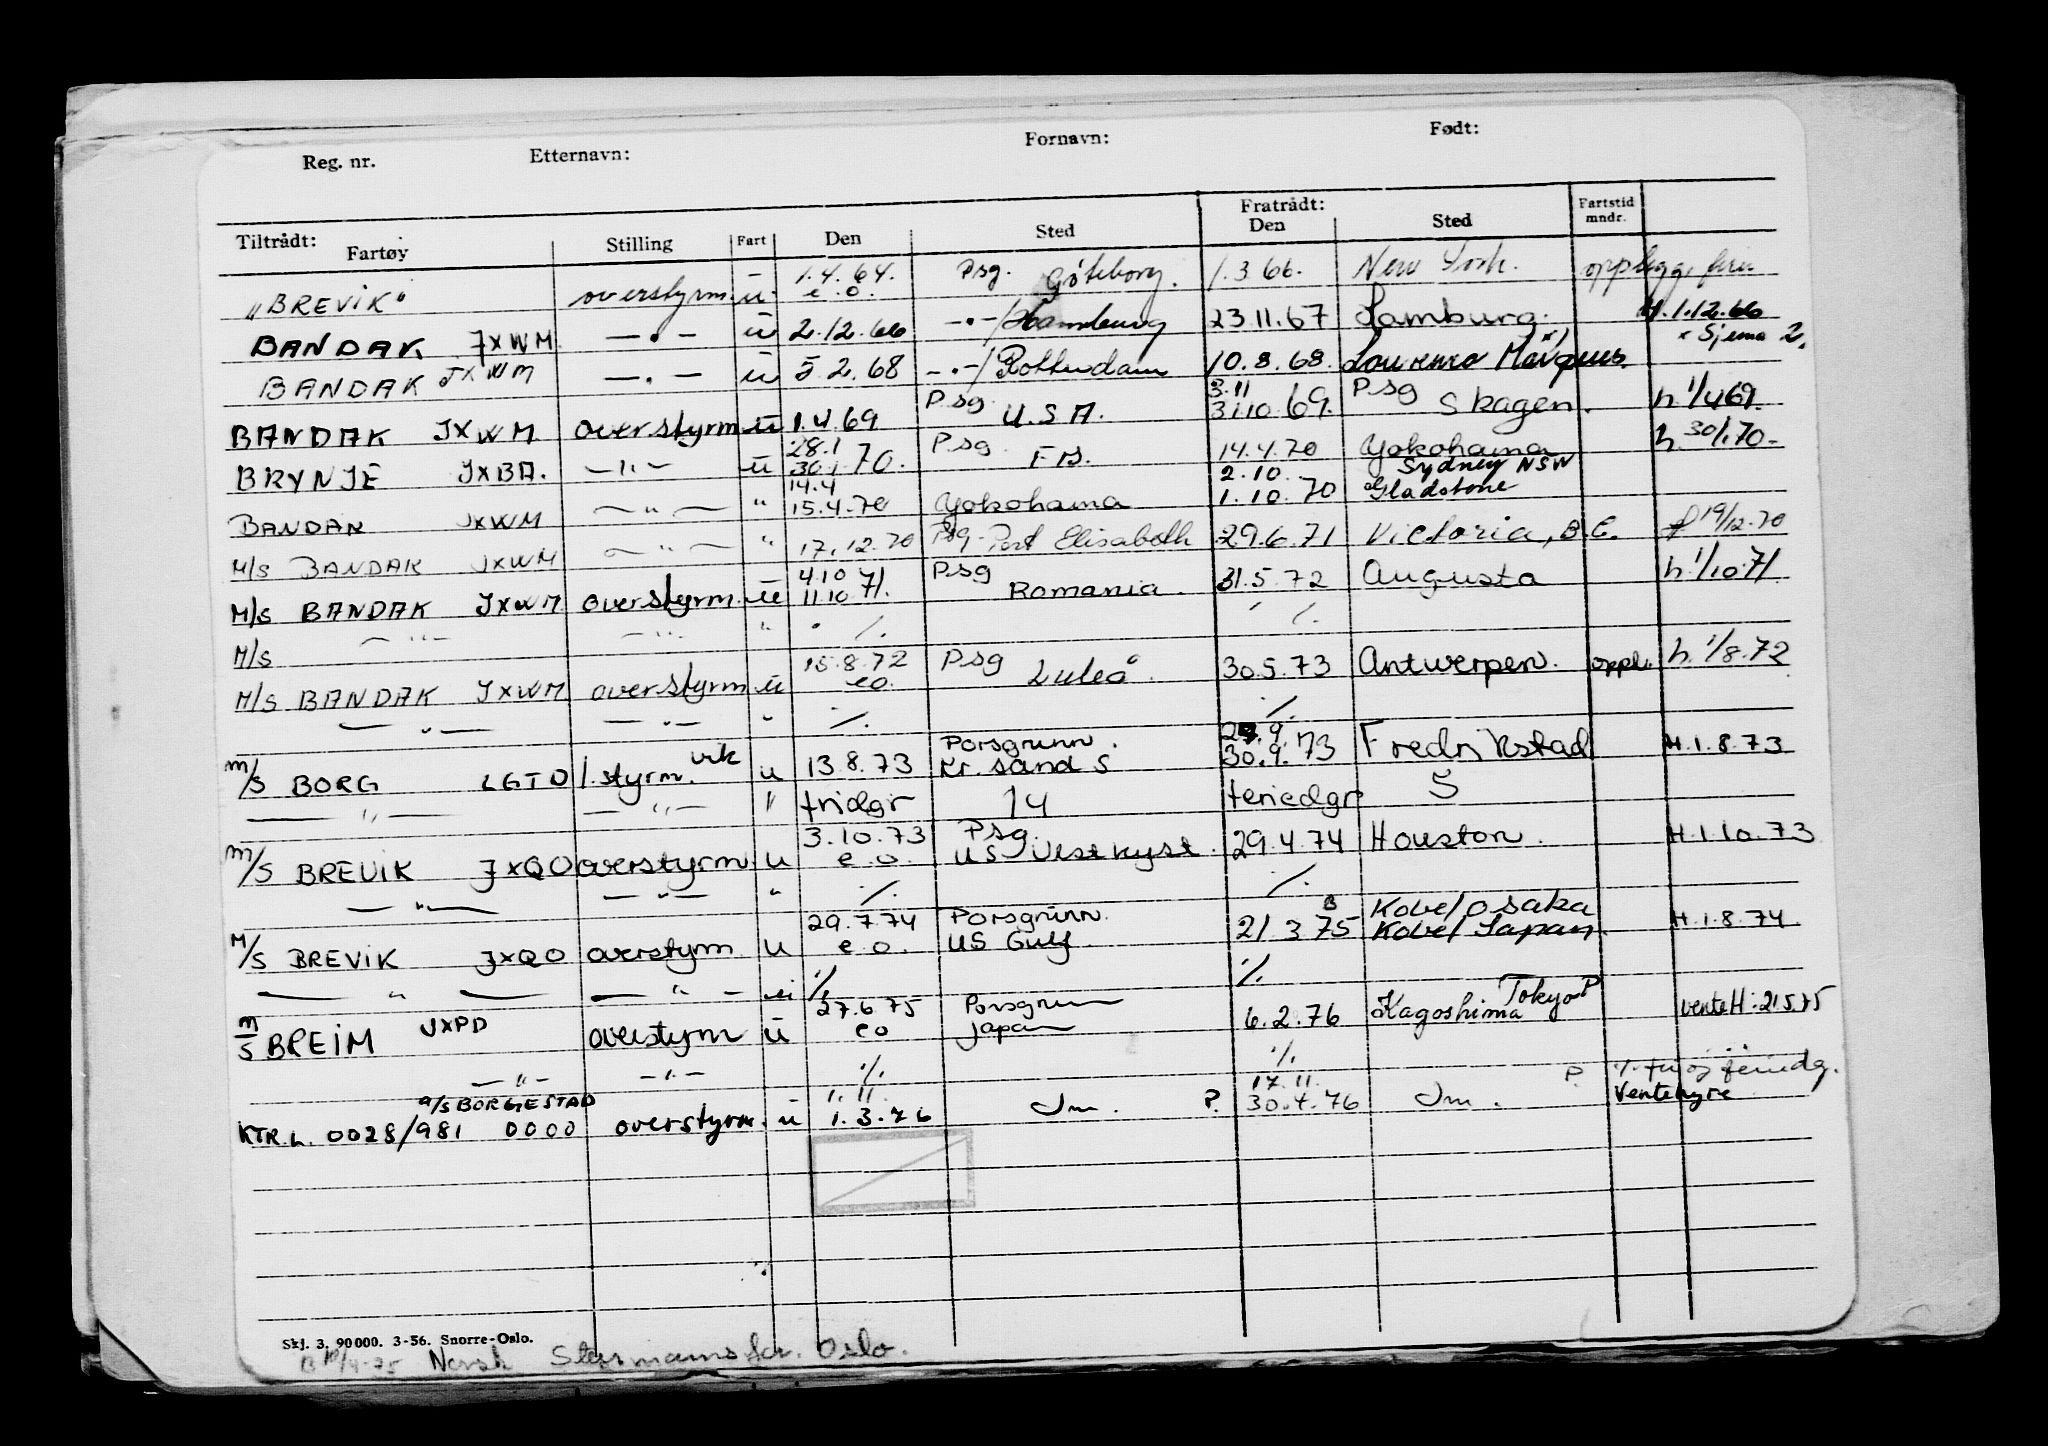 Reg. nr. Etternavn: Fornavn: Født:
Tiltrådt: Fratrådt: Fartstid
Fartøy Stilling Fart Den Sted Den Sted mndr.
"BREVIK" overstyrm. u 1.4.64. e.o. Psg. Göteborg. 1.3.66. New York. opplegg, ferie
BANDAK JXWM — . — u 2.12.66 -•-/Hamburg 23.11.67 Hamburg. H.1.12.66
BANDAK JXWM — . — u 5.2.68 -•-/Rotterdam 10.8.68 Lourenco Marques. x) x Sjema 2.
BANDAK JXWM overstyrm. u 1.4.69 Psg U.S.A. 3.11 31.10.69. Psg Skagen. h. 1/4 69.
BRYNJE JXBA. — " — u 28.1 30.1.70. Psg FB. 14.4.70 Yokohama h. 30/1.70-
BANDAK JXWM — " — " 14.4 15.4.70 Yokohama 2.10. 1.10.70 Sydney NSW Gladstone
M/S BANDAK JXWM — " — " 17.12.70 Psg - Port Elisabeth 29.6.71 Victoria, B.C. 19/12.70
M/S BANDAK JXWM overstyrm. u 4.10 11.10 71. Psg Romania. 31.5.72 Augusta h. 1/10.71
M/S — " — — " — " ./. ./.
M/S BANDAK JXWM overstyrm u 15.8.72 eo. Psg Luleå. 30.5.73 Antwerpen. oppl. h. 1/8.72
— " — — " — " ./. ./.
M/S BORG LGTO 1. styrm. vik u 13.8.73 Porsgrunn. Kr. sand S 30.9.73 Fredrikstad H.1.8.73
— " — — " — " fridgr 14 feriedgr 5
M/S BREVIK JXQO overstyrm. u 3.10.73 e.o. Psg. US Vestkyst. 29.4.74 Houston. H.1.10.73
— " — — " — " ./. ./.
M/S BREVIK JXQO overstyrm. u 29.7.74 e.o. Porsgrunn. US Gulf 21.3.75 B Kobe/Osaka Kobe/Japan H.1.8.74
— " — — " — ./. ./.
M/S BREIM JXPD overstyrm u 27.6.75 eo Porsgrunn Japan 6.2.76 Kagoshima Tokyo P vente H: 21.5.75
— " — — " — ./. ./. P. ./. fri og feriedg.
KTR.L. 0028/981 A/S BORGESTAD 0000 overstyrm. u 1.11. 1.3.76 Jm. P. 17.11. 30.4.76 Jm. Ventehyre
Skj. 3. 90000. 3-56. Snorre-Oslo.
Norsk Styrmannsfor. Oslo.